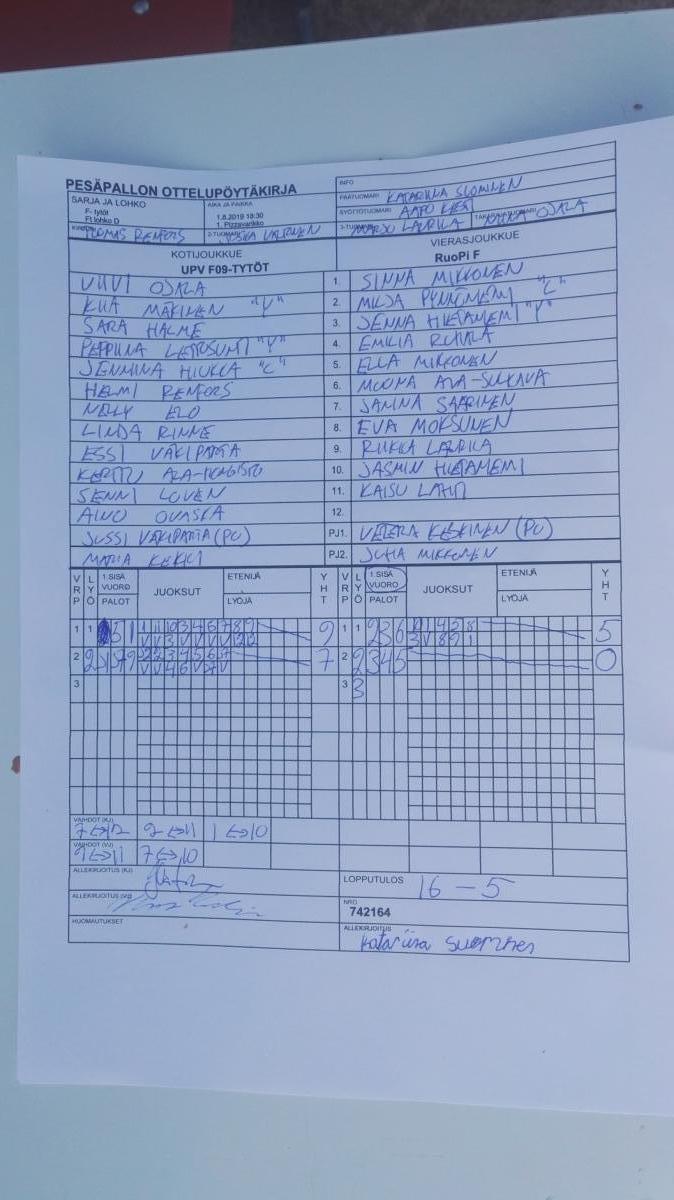 PESÄPALLON OTTELUPÖYTÄKIRJA
INFO
SARJA JA LOHKO
F- tytöt
F1 lohko D
AIKA JA PAIKKA
1.8.2019 18:30
1. Pizzavarikko
PÄÄTUOMARI KATARIINA SUOMINEN
SYÖTTÖTUOMARI AAPO
TUOMAS RENFORS
2-TUOMARI JOSKA VALTONEN
3-TUOMARI MARJO LAURILA
OJALA
KOTIJOUKKUE
UPV F09-TYTÖT
VIERASJOUKKUE
RuoPi F
VIIVI OJALA 1. SINNA MIKKONEN
KIIA MÄKINEN "V" 2. MILJA "C"
SARA HALME 3. JENNA HIETANIEMI "V"
PEPPIINA "V" 4. EMILIA
JEMMINA HIUKKA "C" 5. ELLA MIKKONEN
HELMI RENFORS 6. MOONA ALA-SULKAVA
NELLY ELO 7. JANINA SAARINEN
LINDA RINNE 8. EVA MOKSUNEN
ESSI VÄKIPARTA 9. RIIKKA LAURILA
KERTTU ALA-HONGISTO 10. JASMIN HIETANIEMI
SENNI LOVEN 11. KAISU LAHTI
AINO OVASKA 12.
JUSSI VÄKIPARTA (PJ) PJ1. KESKINEN (PJ)
MARIA PJ2. JUHA MIKKONEN
VRP LYÖ 1.SISÄ VUORO PALOT JUOKSUT ETENIJÄ LYÖJÄ YHT VRP LYÖ 1.SISÄ VUORO PALOT JUOKSUT ETENIJÄ LYÖJÄ YHT
1 1 5 1 1 1 10 3 4 6 7 8 9 9 1 1 2 3 6 1 1 4 5 8 5
V V 3 V V V V 12 12 3 V 8 9 1
2 2 1 7 9 2 2 3 4 5 6 7 7 2 2 3 4 5 0
V V 4 6 V 7 V
3 3 3
VAIHDOT (KJ)
7↔12 2↔11 1↔10
VAIHDOT (VJ)
9↔11 7↔10
ALLEKIRJOITUS (KJ)
LOPPUTULOS 16 - 5
ALLEKIRJOITUS (VJ)
NRO
742164
HUOMAUTUKSET
ALLEKIRJOITUS
Katariina Suominen